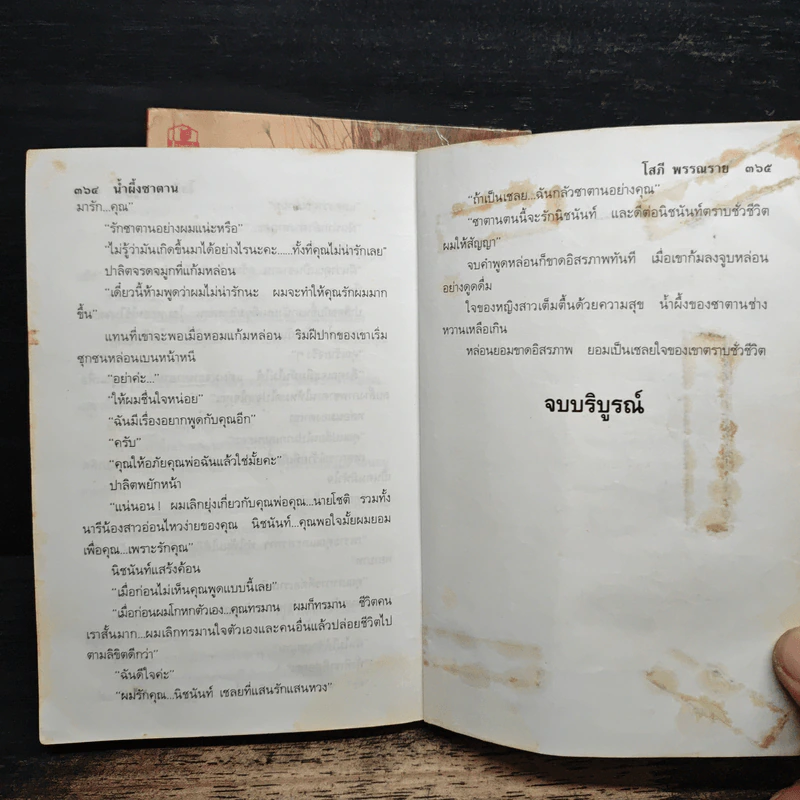 ๓๖๔ น้ำผึ้งซาตาน
มารัก...คุณ”
“รักซาตานอย่างผมแน่ะหรือ”
“ไม่รู้ว่ามันเกิดขึ้นมาได้อย่างไรนะคะ......ทั้งที่คุณไม่น่ารักเลย”
ปาลิตจรดจมูกที่แก้มหล่อน
“เดี๋ยวนี้ห้ามพูดว่าผมไม่น่ารักนะ ผมจะทำให้คุณรักผมมาก
ขึ้น”
แทนที่เขาจะพอเมื่อหอมแก้มหล่อน ริมฝีปากของเขาเริ่ม
ซุกซนหล่อนเบนหน้าหนี
“อย่าค่ะ...”
“ให้ผมชื่นใจหน่อย”
“ฉันมีเรื่องอยากพูดกับคุณอีก”
“ครับ”
“คุณให้อภัยคุณพ่อฉันแล้วใช่มั้ยคะ”
ปาลิตพยักหน้า
“แน่นอน! ผมเลิกยุ่งเกี่ยวกับคุณพ่อคุณ...นายโชติ รวมทั้ง
นารีน้องสาวอ่อนไหวง่ายของคุณ นิชนันท์...คุณพอใจมั้ยผมยอม
เพื่อคุณ...เพราะรักคุณ”
นิชนันท์แสร้งค้อน
“เมื่อก่อนไม่เห็นคุณพูดแบบนี้เลย”
“เมื่อก่อนผมโกหกตัวเอง...คุณทรมาน ผมก็ทรมาน ชีวิตคน
เราสั้นมาก...ผมเลิกทรมานใจตัวเองและคนอื่นแล้วปล่อยชีวิตไป
ตามลิขิตดีกว่า”
“ฉันดีใจค่ะ”
“ผมรักคุณ...นิชนันท์ เชลยที่แสนรักแสนหวง”
โสภี พรรณราย ๓๖๕
“ถ้าเป็นเชลย...ฉันกลัวซาตานอย่างคุณ”
“ซาตานตนนี้จะรักนิชนันท์ และดีต่อนิชนันท์ตราบชั่วชีวิต
ผมให้สัญญา”
จบคำพูดหล่อนก็ขาดอิสรภาพทันที เมื่อเขาก้มลงจูบหล่อน
อย่างดูดดื่ม
ใจของหญิงสาวเต็มตื้นด้วยความสุข น้ำผึ้งของซาตานช่าง
หวานเหลือเกิน
หล่อนยอมขาดอิสรภาพ ยอมเป็นเชลยใจของเขาตราบชั่วชีวิต
จบบริบูรณ์